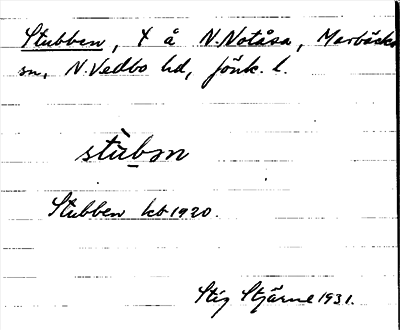 Stubben, X å N. Notåsa, Marbäcks
sn, N. Vedbo hd, Jönk. l.
stùbm̥
Stubben kb 1920.
Stig Stjärne 1931.